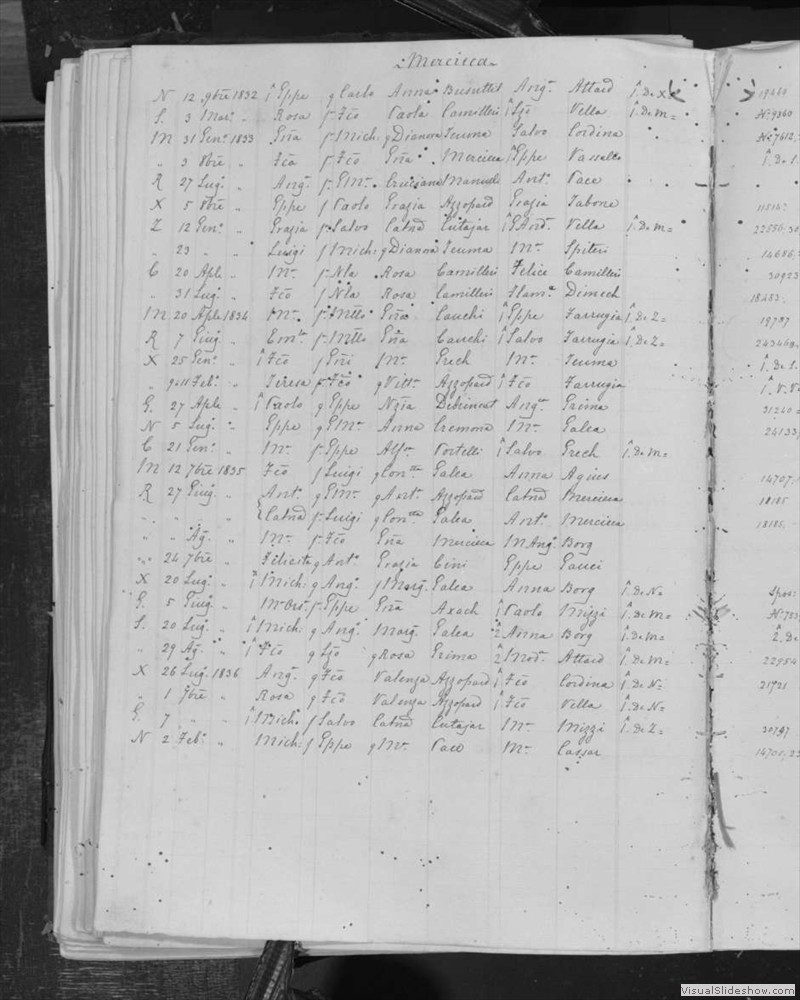 Mercieca
N 12 9bre 1832 1̂ Eppe q Carlo Anna Busuttil Ang. Attard 1̂. De X
S. 3 Mar. " Rosa f. Fco Paola Camilleri 1̂ Lzo Vella 1̂. De M=
M 31 Gen. 1833 Gña f. Mich. q Dianora Scuma Salvo Cordina
" 3 8bre " Fca f. Fco Gña Mercieca 1̂ Eppe Vassallo
R 27 Lug. " Ang. f. GMr. Cruciana Mamuli Ant. Pace
X 5 8bre " Eppe f Paolo Grazia Azzopard Grazia Tabone
Z 12 Gen. " Grazia f. Salvo Catnd Cutajar 1̂ GAnd. Vella 1̂. De M=
" 23 " " Luigi f Mich. q Dianora Scuma Mr. Spiteri
C 20 Aple " Mr. f. Nla Rosa Camilleri Felice Camilleri
" 31 Lug. " Fco f Nla Rosa Camilleri Dimech
M 20 Aple 1834 Mr. f. Mtto Gña Cauchi 1̂ Eppe Farrugia 1̂. De Z=
R 7 Giug. " Emle f. Mtto Gña Cauchi 1̂ Salvo Farrugia 1̂. De Z=
X 25 Gen. " 1̂ Fco f Gñi Mr. Grech Mr. Scuma
" Feb. " Teresa f. Fco q Vitt. Azzopard 1̂ Fco Farrugia
G. 27 Aple " 1̂ Paolo q Eppe Nzia Debrincat Ang. Grima
N 5 Lug. " Eppe q GMr. Anna Cremona Mr. Galea
C 21 Gen. " Mr. f. Eppe Alfo. Portelli 1̂ Salvo Grech 1̂. De M=
M 12 7bre 1835 Fco f Luigi q Con. Galea Anna Agius
R 27 Giug. " Ant. q GMr. q Ant. Azzopard Catnd Mercieca
" " " { Catnd f. Luigi q Con. Galea Ant. Mercieca
" " Ag. " Mr. f. Fco Gña Mercieca M Ang. Borg
" 24 7bre " Felicita q Ant. Grazia Cini Eppe Gauci
X 20 Lug. " 1̂ Mich. q Ang. f Marg. Galea Anna Borg 1̂. De N=
G. 5 Giug. " f. Eppe Gña Axach 1̂ Paolo Mizzi 1̂. De M=
S. 20 Lug. " 1̂ Mich. q Ang. Marg. Galea 2̂ Anna Borg 1̂. De M=
" 29 Ag. " 1̂ Fco q Lzo q Rosa Grima 2̂ Mod. Attard 1̂. De M=
X 26 Lug. 1836 Ang. q Fco Valenza Azzopard 1̂ Fco Cordina 1̂. De N=
" 1 7bre " Rosa q Fco Valenza Azzopard 1̂ Fco Vella 1̂. De N=
G. 7 " " 1̂ Mich. f Salvo Catnd Cutajar Mr. Mizzi 1̂. De Z=
N 2 Feb. " Mich. f Eppe q Mr. Pace Mr. Cassar
19260
N. 9360
N. 7612.
1̂. De
22556.30
14686.
30923
18283
19787
243460
21240
24133
14707.
18185
18186.
Spos:
22954
21921
30797
14701,23
VisualSlideshow.com